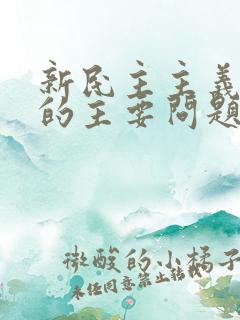 新民主主义
的主要问题
微酸的小橘子
未经同意禁止转载